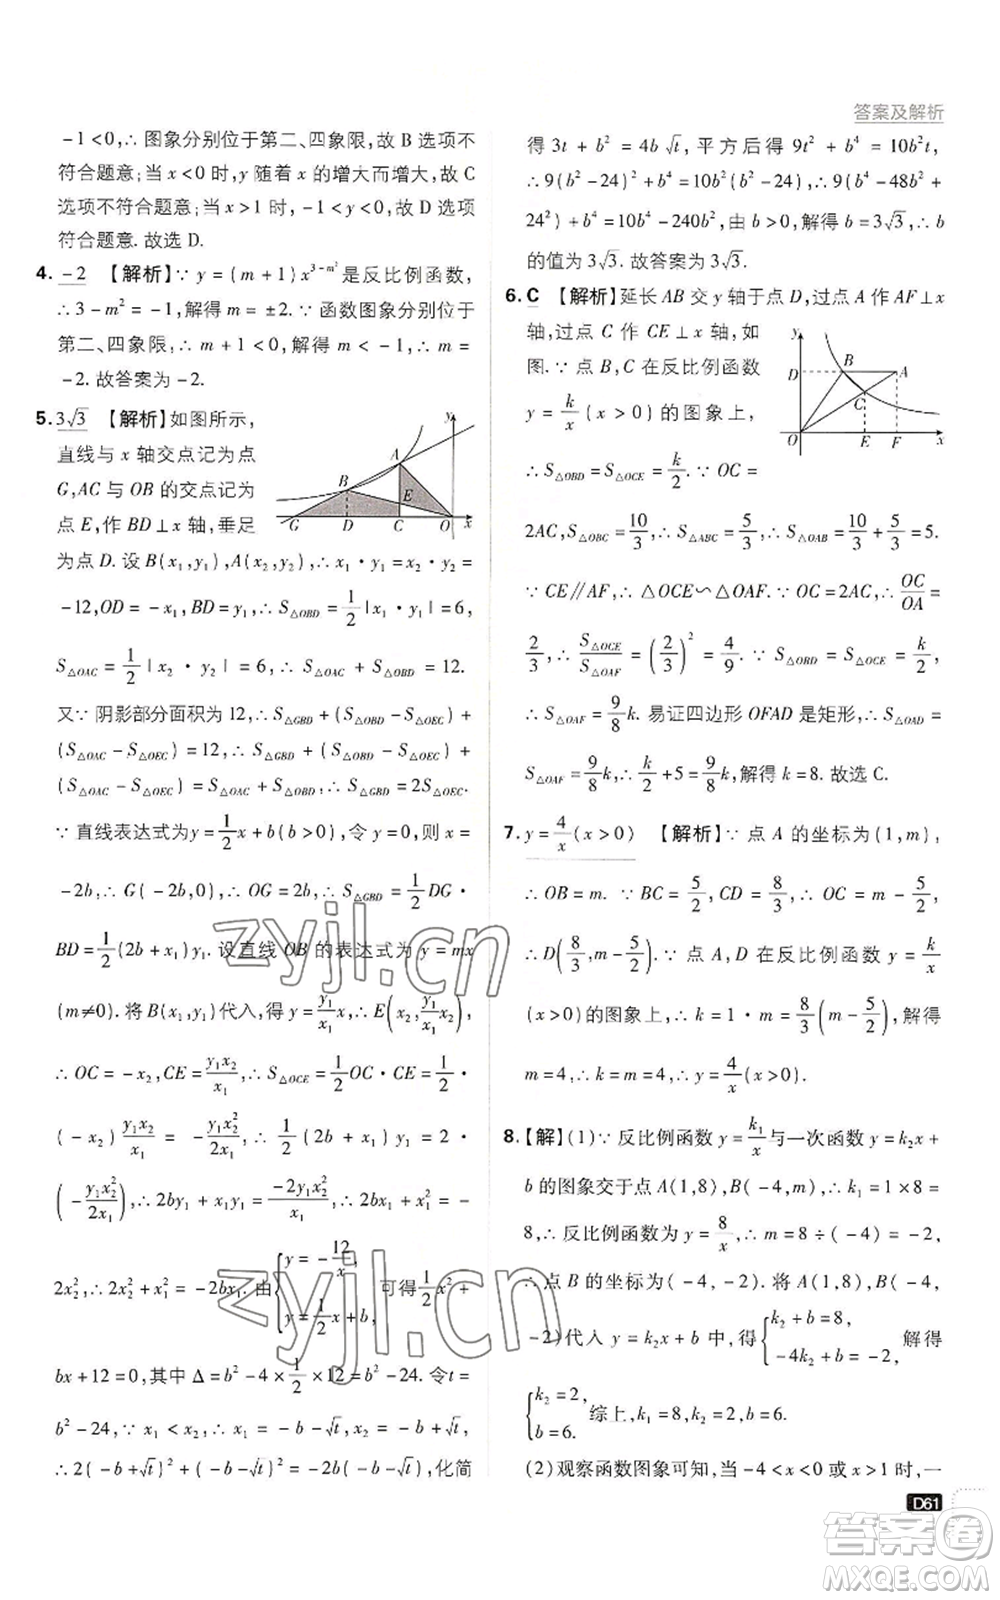 答案及解析
-1<0,∴ 图象分别位于第二、四象限,故 B 选项不
符合题意;当 x<0 时,y 随着 x 的增大而增大,故 C
选项不符合题意;当 x>1 时,-1<y<0,故 D 选项
符合题意. 故选 D.
4. -2 【解析】∵ y=(m+1)x^{3-m²}是反比例函数,
∴ 3-m²=-1,解得 m=±2. ∵ 函数图象分别位于
第二、四象限,∴ m+1<0,解得 m<-1,∴ m=
-2. 故答案为-2.
5. 3√3 【解析】如图所示,
直线与 x 轴交点记为点
G,AC 与 OB 的交点记为
点 E,作 BD⊥x 轴,垂足
y
A
B
E
G D C O x
为点 D. 设 B(x₁,y₁),A(x₂,y₂),∴ x₁·y₁=x₂·y₂=
-12,OD=-x₁,BD=y₁,∴ S△OBD=1/2|x₁·y₁|=6,
S△OAC=1/2|x₂·y₂|=6,∴ S△OAC+S△OBD=12.
又∵ 阴影部分面积为 12,∴ S△GBD+(S△OBD-S△OEC)+
(S△OAC-S△OEC)=12,∴ S△GBD+(S△OBD-S△OEC)+
(S△OAC-S△OEC)=S△OAC+S△OBD,∴ S△GBD=2S△OEC.
∵ 直线表达式为y=1/2x+b(b>0),令 y=0,则 x=
-2b,∴ G(-2b,0),∴ OG=2b,∴ S△GBD=1/2DG·
BD=1/2(2b+x₁)y₁. 设直线 OB 的表达式为 y=mx
(m≠0). 将 B(x₁,y₁)代入,得 y=y₁/x₁x,∴ E(x₂,y₁/x₁x₂),
∴ OC=-x₂,CE=y₁x₂/x₁,∴ S△OCE=1/2OC·CE=1/2
(-x₂)y₁x₂/x₁=-y₁x₂²/2x₁,∴ 1/2(2b+x₁)y₁=2·
(-y₁x₂²/2x₁),∴ 2by₁+x₁y₁=-2y₁x₂²/x₁,∴ 2bx₁+x₁²=-
2x₂²,∴ 2x₂²+x₁²=-2bx₁. 由{y=-12/x, y=1/2x+b, 可得1/2x²+
bx+12=0,其中 Δ=b²-4×1/2×12=b²-24. 令t=
b²-24,∵ x₁<x₂,∴ x₁=-b-√t,x₂=-b+√t,
∴ 2(-b+√t)²+(-b-√t)²=-2b(-b-√t),化简
得 3t+b²=4b√t,平方后得 9t²+b⁴=10b²t,
∴ 9(b²-24)²+b⁴=10b²(b²-24),∴ 9(b⁴-48b²+
24²)+b⁴=10b⁴-240b²,由 b>0,解得 b=3√3,∴ b
的值为 3√3. 故答案为 3√3.
6. C 【解析】延长 AB 交 y 轴于点 D,过点 A 作 AF⊥x
轴,过点 C 作 CE⊥x 轴,如
图. ∵ 点 B,C 在反比例函数
y=k/x(x>0)的图象上,
∴ S△OBD=S△OCE=k/2. ∵ OC=
y
D B A
C
O E F x
2AC,S△OBC=10/3,∴ S△ABC=5/3,∴ S△OAB=10/3+5/3=5.
∵ CE∥AF,∴ △OCE∽△OAF. ∵ OC=2AC,∴ OC/OA=
2/3,∴ S△OCE/S△OAF=(2/3)²=4/9. ∵ S△OBD=S△OCE=k/2,
∴ S△OAF=9/8k. 易证四边形 OFAD 是矩形,∴ S△OAD=
S△OAF=9/8k,∴ k/2+5=9/8k,解得 k=8. 故选 C.
7. y=4/x(x>0) 【解析】∵ 点 A 的坐标为(1,m),
∴ OB=m. ∵ BC=5/2,CD=8/3,∴ OC=m-5/2,
∴ D(8/3,m-5/2). ∵ 点 A,D 在反比例函数 y=k/x
(x>0)的图象上,∴ k=1·m=8/3(m-5/2),解得
m=4,∴ k=4,∴ y=4/x(x>0).
8. 【解】(1)∵ 反比例函数 y=k₁/x与一次函数 y=k₂x+
b 的图象交于点 A(1,8),B(-4,m),∴ k₁=1×8=
8,∴ 反比例函数为 y=8/x,∴ m=8÷(-4)=-2,
∴ 点 B 的坐标为(-4,-2). 将 A(1,8),B(-4,
-2)代入 y=k₂x+b 中,得{k₂+b=8, -4k₂+b=-2, 解得
{k₂=2, b=6. 综上,k₁=8,k₂=2,b=6.
(2)观察函数图象可知,当-4<x<0 或 x>1 时,一
D61
zyjl.cn
zyjl.cn
答案卷
MXQE.COM